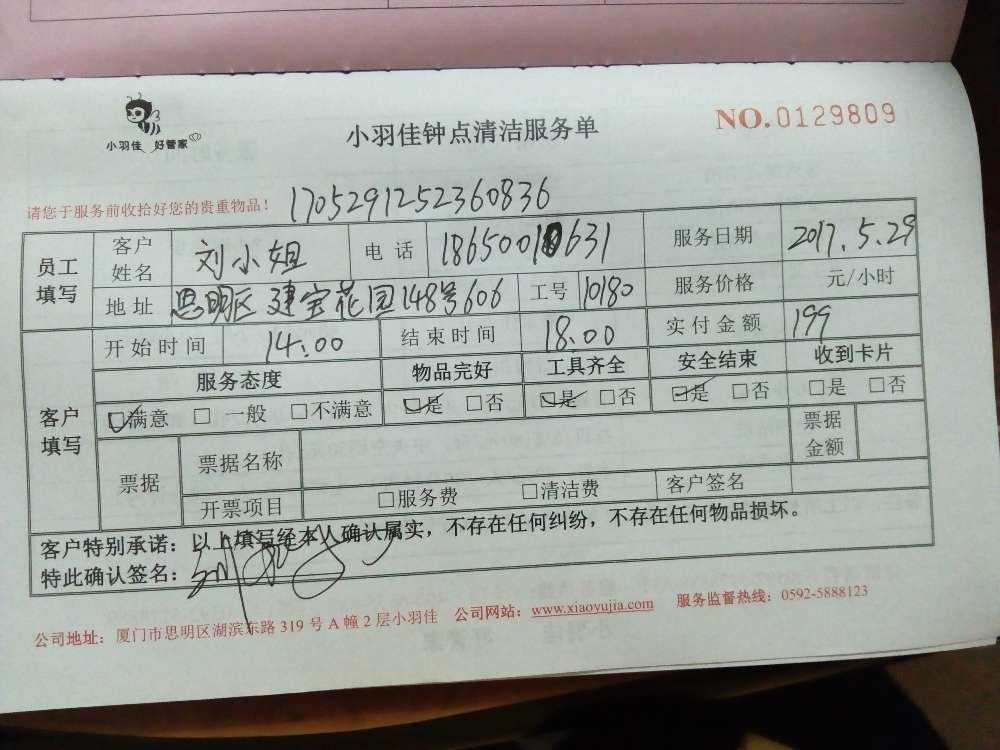 小羽佳 好管家
小羽佳钟点清洁服务单
NO.0129809
请您于服务前收拾好您的贵重物品！ 1705291252360836
员工填写 客户姓名 刘小姐 电话 18650010631 服务日期 2017.5.29
地址 思明区建宝花园148号606 工号 10180 服务价格 元/小时
客户填写 开始时间 14:00 结束时间 18:00 实付金额 199
服务态度 物品完好 工具齐全 安全结束 收到卡片
☑满意 □一般 □不满意 ☑是 □否 ☑是 □否 ☑是 □否 □是 □否
票据 票据名称 票据金额
开票项目 □服务费 □清洁费 客户签名
客户特别承诺：以上填写经本人确认属实，不存在任何纠纷，不存在任何物品损坏。
特此确认签名：
公司地址：厦门市思明区湖滨东路 319 号 A 幢 2 层小羽佳 公司网站：www.xiaoyujia.com 服务监督热线：0592-5888123